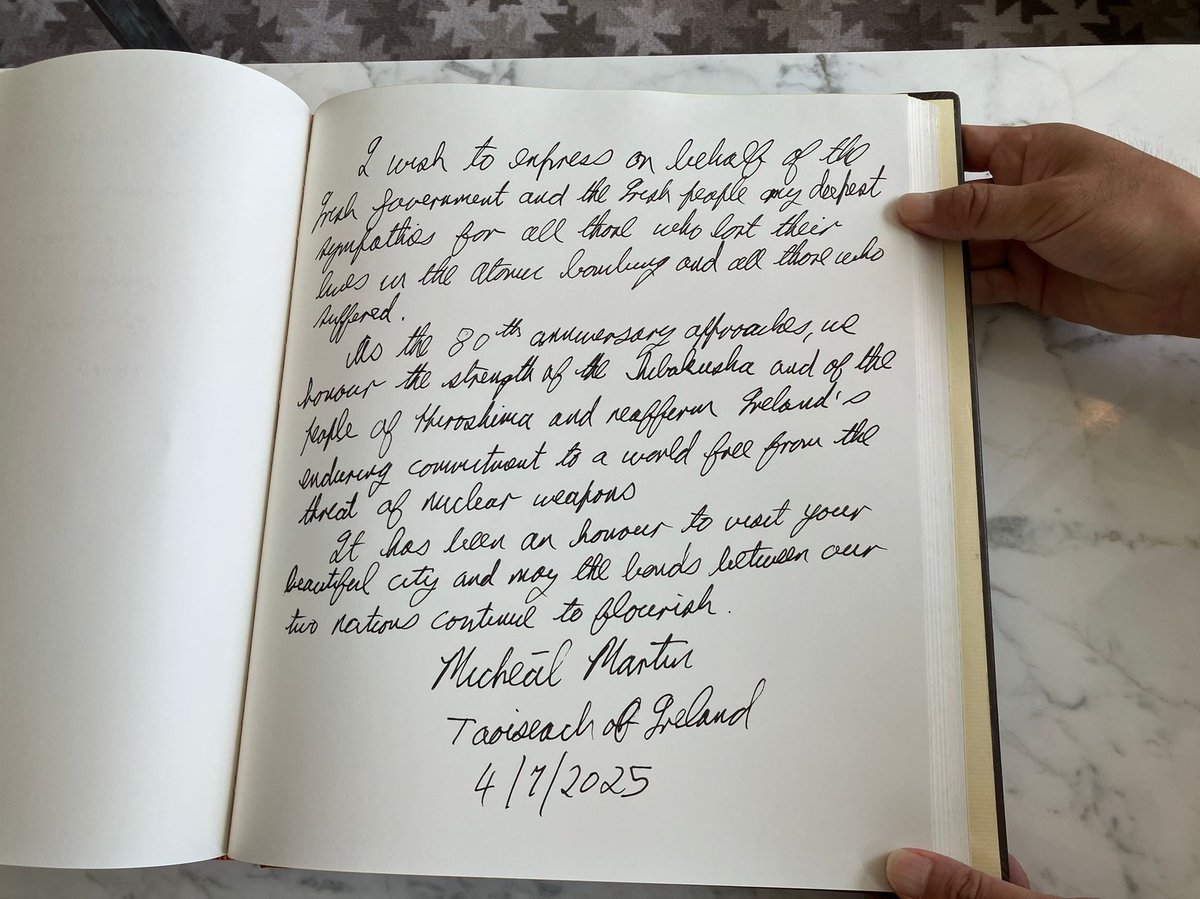 I wish to express on behalf of the
Irish Government and the Irish people my deepest
sympathies for all those who lost their
lives in the atomic bombing and all those who
suffered.
As the 80th anniversary approaches, we
honour the strength of the Hibakusha and of the
people of Hiroshima and reaffirm Ireland's
enduring commitment to a world free from the
threat of nuclear weapons
It has been an honour to visit your
beautiful city and may the bonds between our
two nations continue to flourish.
Micheál Martin
Taoiseach of Ireland
4/7/2025